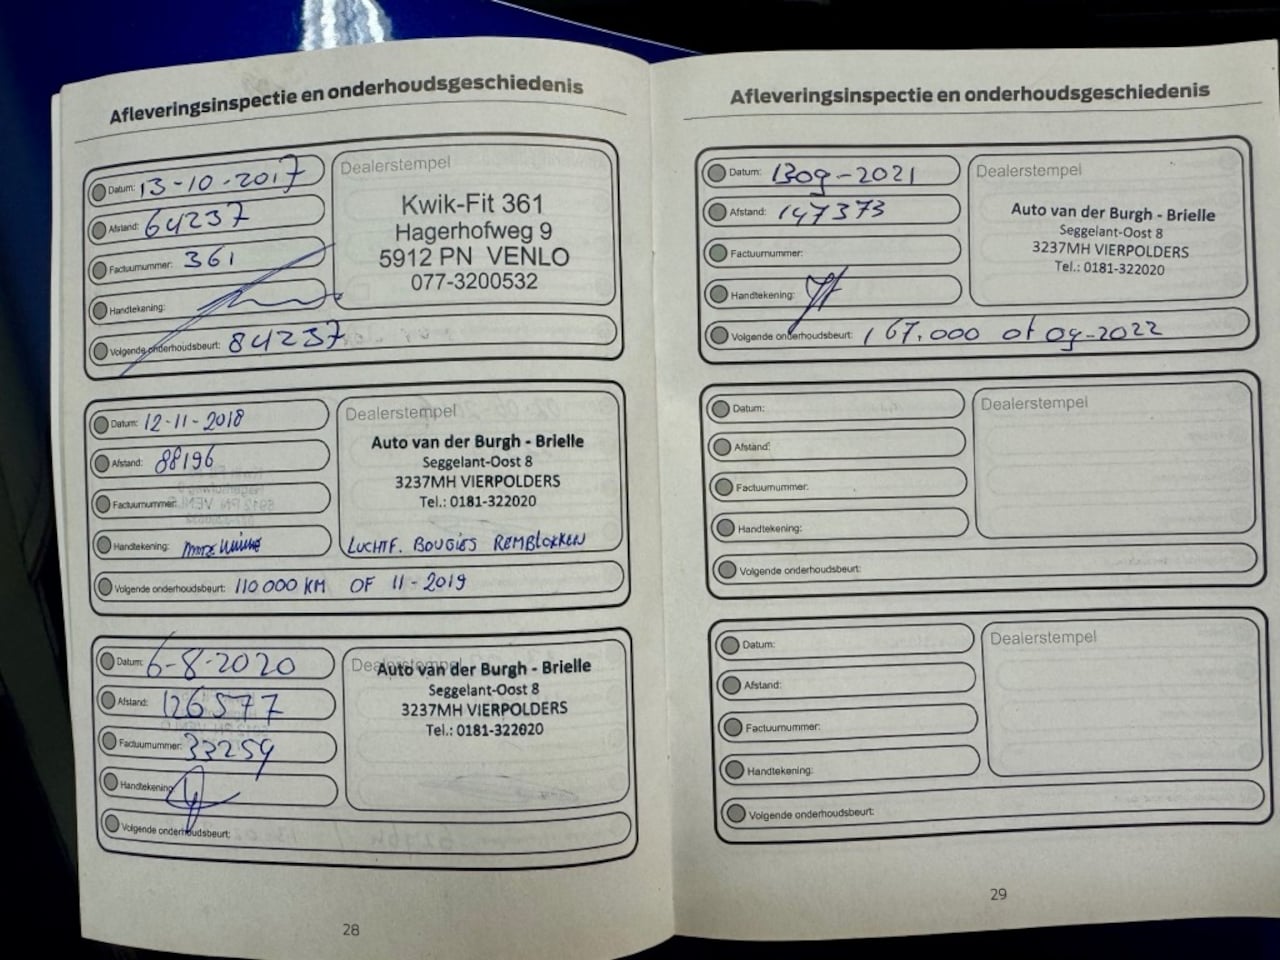 Afleveringsinspectie en onderhoudsgeschiedenis
Datum: 13-10-2017
Afstand: 64237
Factuurnummer: 361
Handtekening:
Volgende onderhoudsbeurt: 84237
Dealerstempel
Kwik-Fit 361
Hagerhofweg 9
5912 PN VENLO
077-3200532
Datum: 12-11-2018
Afstand: 88196
Factuurnummer:
Handtekening:
Volgende onderhoudsbeurt: 110000 KM OF 11-2019
Dealerstempel
Auto van der Burgh - Brielle
Seggelant-Oost 8
3237MH VIERPOLDERS
Tel.: 0181-322020
LUCHTF. BOUGIES REMBLOKKEN
Datum: 6-8-2020
Afstand: 126577
Factuurnummer: 33259
Handtekening:
Volgende onderhoudsbeurt:
Dealerstempel
Auto van der Burgh - Brielle
Seggelant-Oost 8
3237MH VIERPOLDERS
Tel.: 0181-322020
28
Afleveringsinspectie en onderhoudsgeschiedenis
Datum: 1309-2021
Afstand: 147373
Factuurnummer:
Handtekening:
Volgende onderhoudsbeurt: 167.000 of 09-2022
Dealerstempel
Auto van der Burgh - Brielle
Seggelant-Oost 8
3237MH VIERPOLDERS
Tel.: 0181-322020
Datum:
Afstand:
Factuurnummer:
Handtekening:
Volgende onderhoudsbeurt:
Dealerstempel
Datum:
Afstand:
Factuurnummer:
Handtekening:
Volgende onderhoudsbeurt:
Dealerstempel
29